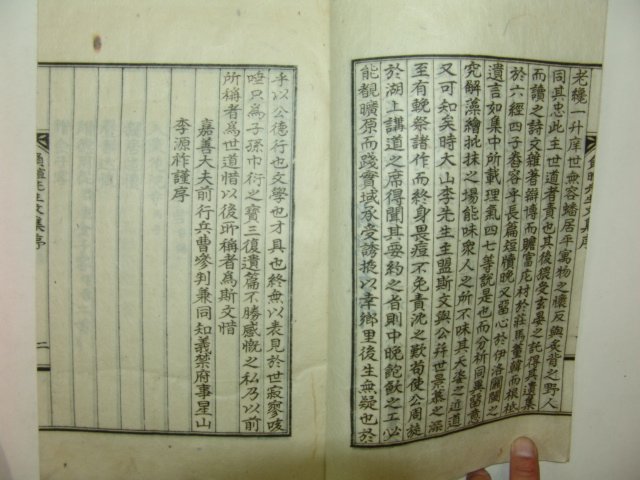 老纔一升庠世無容蟠居平寓物之懷反與矣背之野人
同其忠此主世道者責也其後猥受玄晏之託得其遺集
而讀之詩文雜著辯博而贍富庀材於莊馬董韓而根柢
於六經四子舂容乎長篇短牘晚又留心於伊洛關閩之
遺言如集中所載理氣四七等說是也而分析同異簒意
究解藻繪批抹之場能味衆人之所不味其大楼之近道
又可知矣時大山李先生主盟斯文與公幷世景慕之深
至有輓祭諸作而終身畏壘不免責沈之歎苟使公周旋
於湖上講道之席得聞其要約之旨則中晚飽飫之工必
能覩曠原而踐實域承受誘掖以幸鄕里後生無疑也於
乎以公德行也文學也才具也終無以表見於世寂寥咳
唾只爲子孫巾衍之寶三復遺篇不勝感慨之私乃以前
所稱者爲世道惜以後所稱者爲斯文惜
嘉善大夫前行兵曹參判兼同知義禁府事星山
李源祚謹序
先生文集序
二